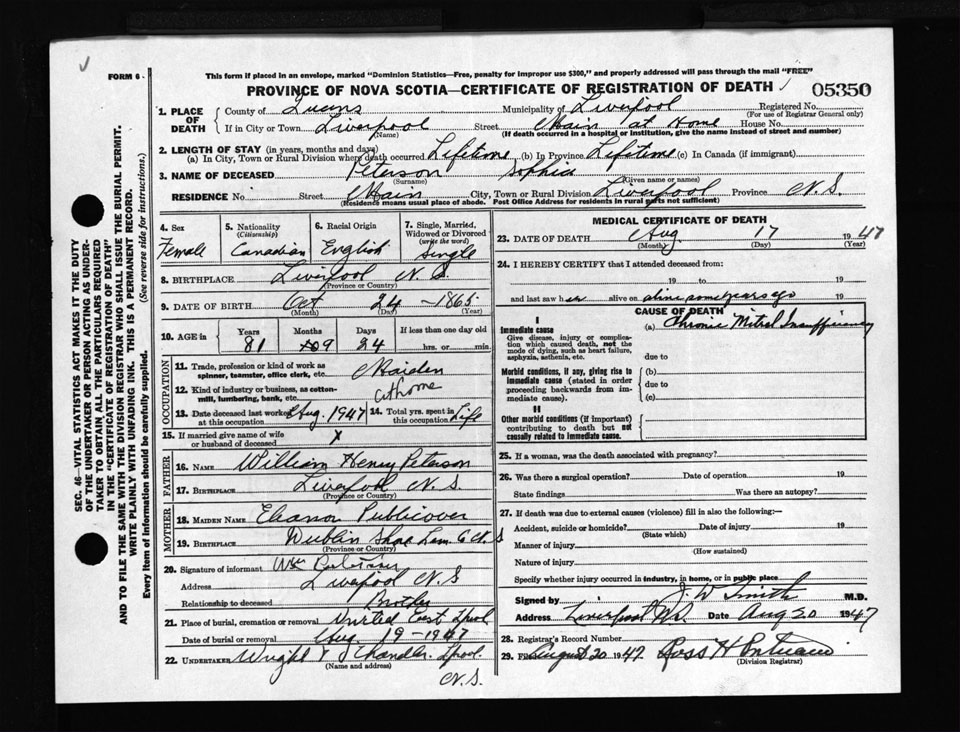 FORM 6
This form if placed in an envelope, marked "Dominion Statistics—Free, penalty for improper use $300," and properly addressed will pass through the mail "FREE"
PROVINCE OF NOVA SCOTIA—CERTIFICATE OF REGISTRATION OF DEATH
05350
1. PLACE OF DEATH
County of Queens Municipality of Liverpool Registered No.
(For use of Registrar General only)
If in City or Town Liverpool Street Main at Home House No.
(Name) (If death occurred in a hospital or institution, give the name instead of street and number)
2. LENGTH OF STAY (in years, months and days)
(a) In City, Town or Rural Division where death occurred Lifetime (b) In Province Lifetime (c) In Canada (if immigrant)
3. NAME OF DECEASED Peterson Sophia
(Surname) (Given name or names)
RESIDENCE No. Street Main City, Town or Rural Division Liverpool Province N.S.
(Residence means usual place of abode. Post Office Address for residents in rural parts not sufficient)
SEC. 46—VITAL STATISTICS ACT MAKES IT THE DUTY
OF THE UNDERTAKER OR PERSON ACTING AS UNDER-
TAKER TO OBTAIN ALL THE PARTICULARS REQUIRED
IN THE "CERTIFICATE OF REGISTRATION OF DEATH"
AND TO FILE THE SAME WITH THE DIVISION REGISTRAR WHO SHALL ISSUE THE BURIAL PERMIT.
WRITE PLAINLY WITH UNFADING INK. THIS IS A PERMANENT RECORD.
Every item of Information should be carefully supplied. (See reverse side for instructions.)
4. Sex 5. Nationality (Citizenship) 6. Racial Origin 7. Single, Married, Widowed or Divorced (write the word)
Female Canadian English Single
8. BIRTHPLACE Liverpool N.S.
(Province or Country)
9. DATE OF BIRTH Oct 24 -1865
(Month) (Day) (Year)
10. AGE in Years Months Days If less than one day old
81 9 24 hrs. or min.
OCCUPATION
11. Trade, profession or kind of work as spinner, teamster, office clerk, etc. Maiden
12. Kind of industry or business, as cotton-mill, lumbering, bank, etc. at home
13. Date deceased last worked at this occupation Aug. 1947 14. Total yrs. spent in this occupation Life
15. If married give name of wife or husband of deceased x
FATHER
16. NAME William Henry Peterson
17. BIRTHPLACE Liverpool N.S.
(Province or Country)
MOTHER
18. MAIDEN NAME Eleanor Publicover
19. BIRTHPLACE Dublin Shore Lun. Co N.S
(Province or Country)
20. Signature of informant Wm Peterson
Address Liverpool N.S
Relationship to deceased Brother
21. Place of burial, cremation or removal United Cent Lpool
Date of burial or removal Aug. 19-1947
22. UNDERTAKER Wright & Chandler. Lpool.
(Name and address)
N.S.
MEDICAL CERTIFICATE OF DEATH
23. DATE OF DEATH Aug 17 1947
(Month) (Day) (Year)
24. I HEREBY CERTIFY that I attended deceased from:
19 to 19
and last saw her alive on alive some years ago 19
CAUSE OF DEATH
I
Immediate cause (a) Chronic Mitral Insufficiency
Give disease, injury or complica-
tion which caused death, not the
mode of dying, such as heart failure,
asphyxia, asthenia, etc. due to
Morbid conditions, if any, giving rise to (b)
immediate cause (stated in order due to
proceeding backwards from im-
mediate cause). (c)
II
Other morbid conditions (if important)
contributing to death but not
causally related to immediate cause.
25. If a woman, was the death associated with pregnancy?
26. Was there a surgical operation? Date of operation 19
State findings Was there an autopsy?
27. If death was due to external causes (violence) fill in also the following:—
Accident, suicide or homicide? Date of injury 19
(State which)
Manner of injury
(How sustained)
Nature of injury
Specify whether injury occurred in industry, in home, or in public place
Signed by J. W Smith M.D.
Address Liverpool N.S. Date Aug 20 1947
28. Registrar's Record Number
29. August 20 1947 Ross H
(Division Registrar)